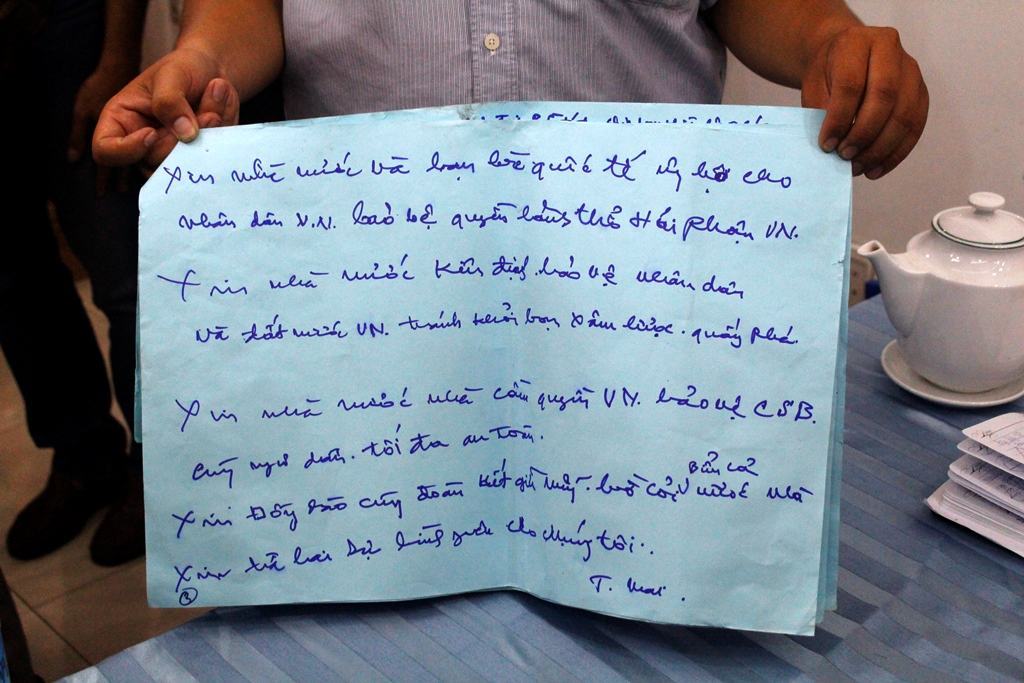 Xin nhà nước và bạn bè quốc tế ủng hộ cho
nhân dân V.N. bảo vệ quyền lãnh thổ Hải phận VN.
Xin nhà nước kiên định bảo vệ nhân dân
và đất nước VN. tránh khỏi bọn xâm lược. quấy phá.
Xin nhà nước nhà cầm quyền VN. bảo vệ CSB.
cùng ngư dân. tối đa an toàn.
Xin Đồng bào cùng đoàn kết gìn giữ. bờ cõi
nước nhà
Xin trả lại sự cho chúng tôi..
T. Mai.
3